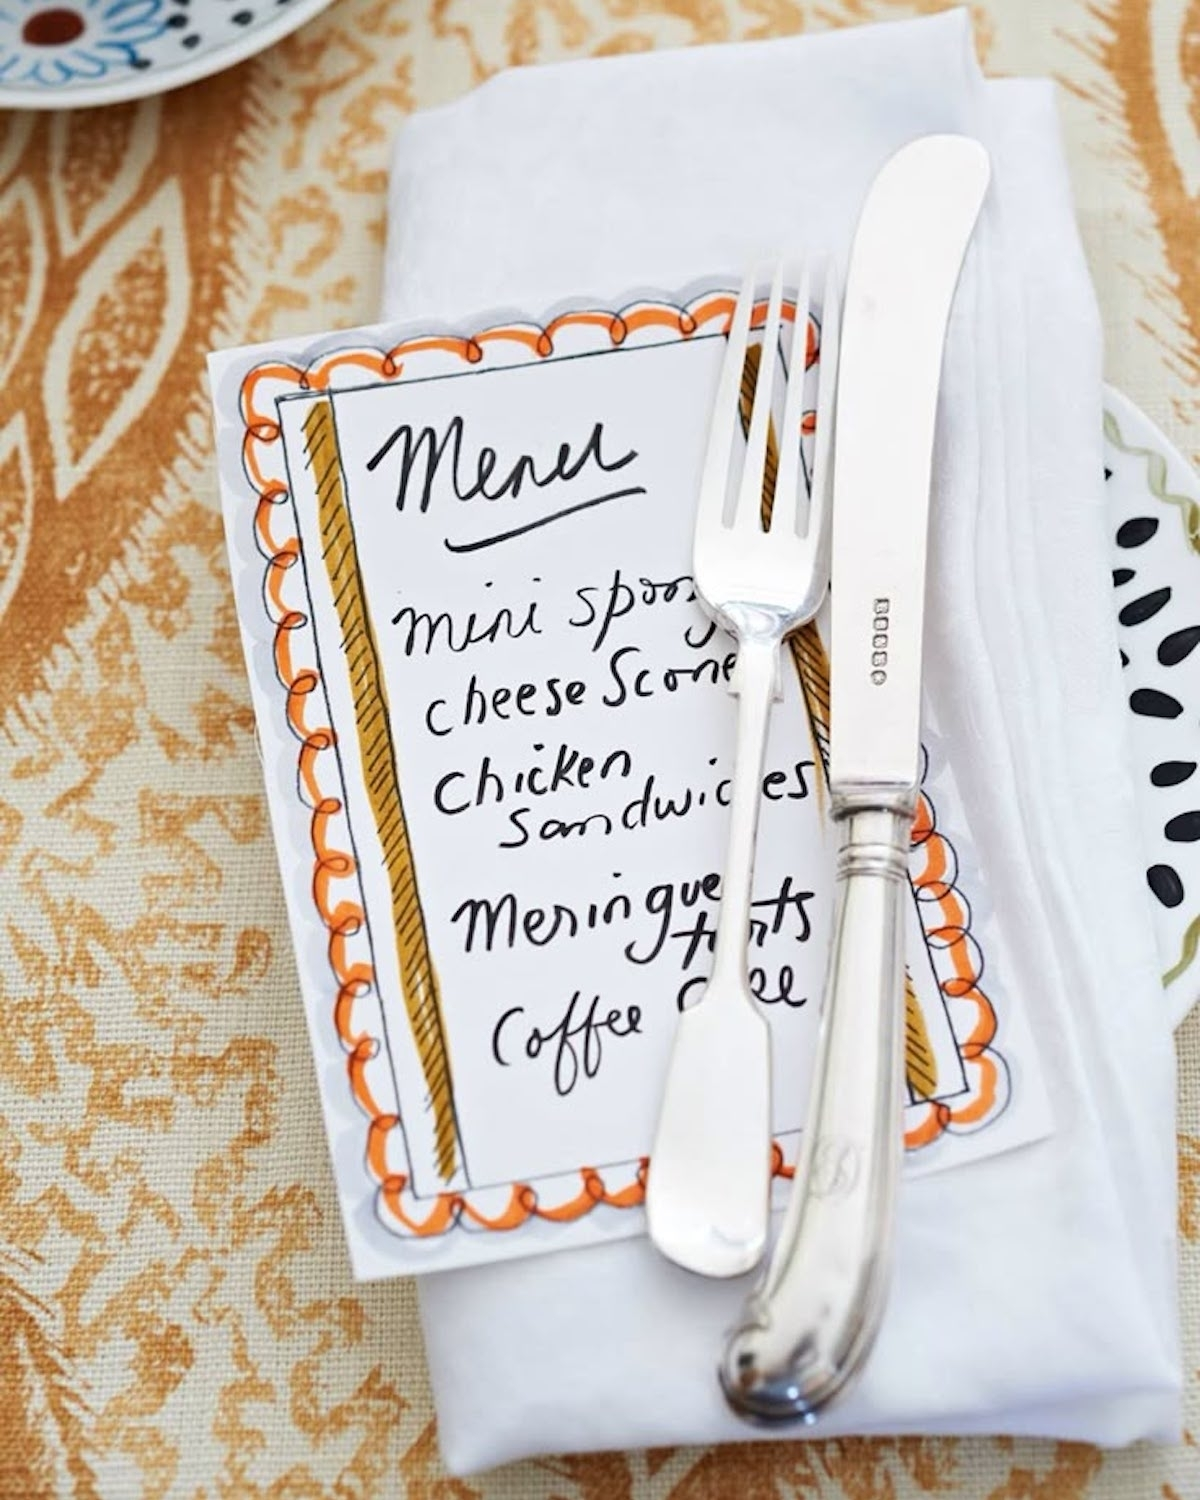 Menu
mini
cheese Scone
Chicken
Sandwiches
Meringue
tarts
Coffee